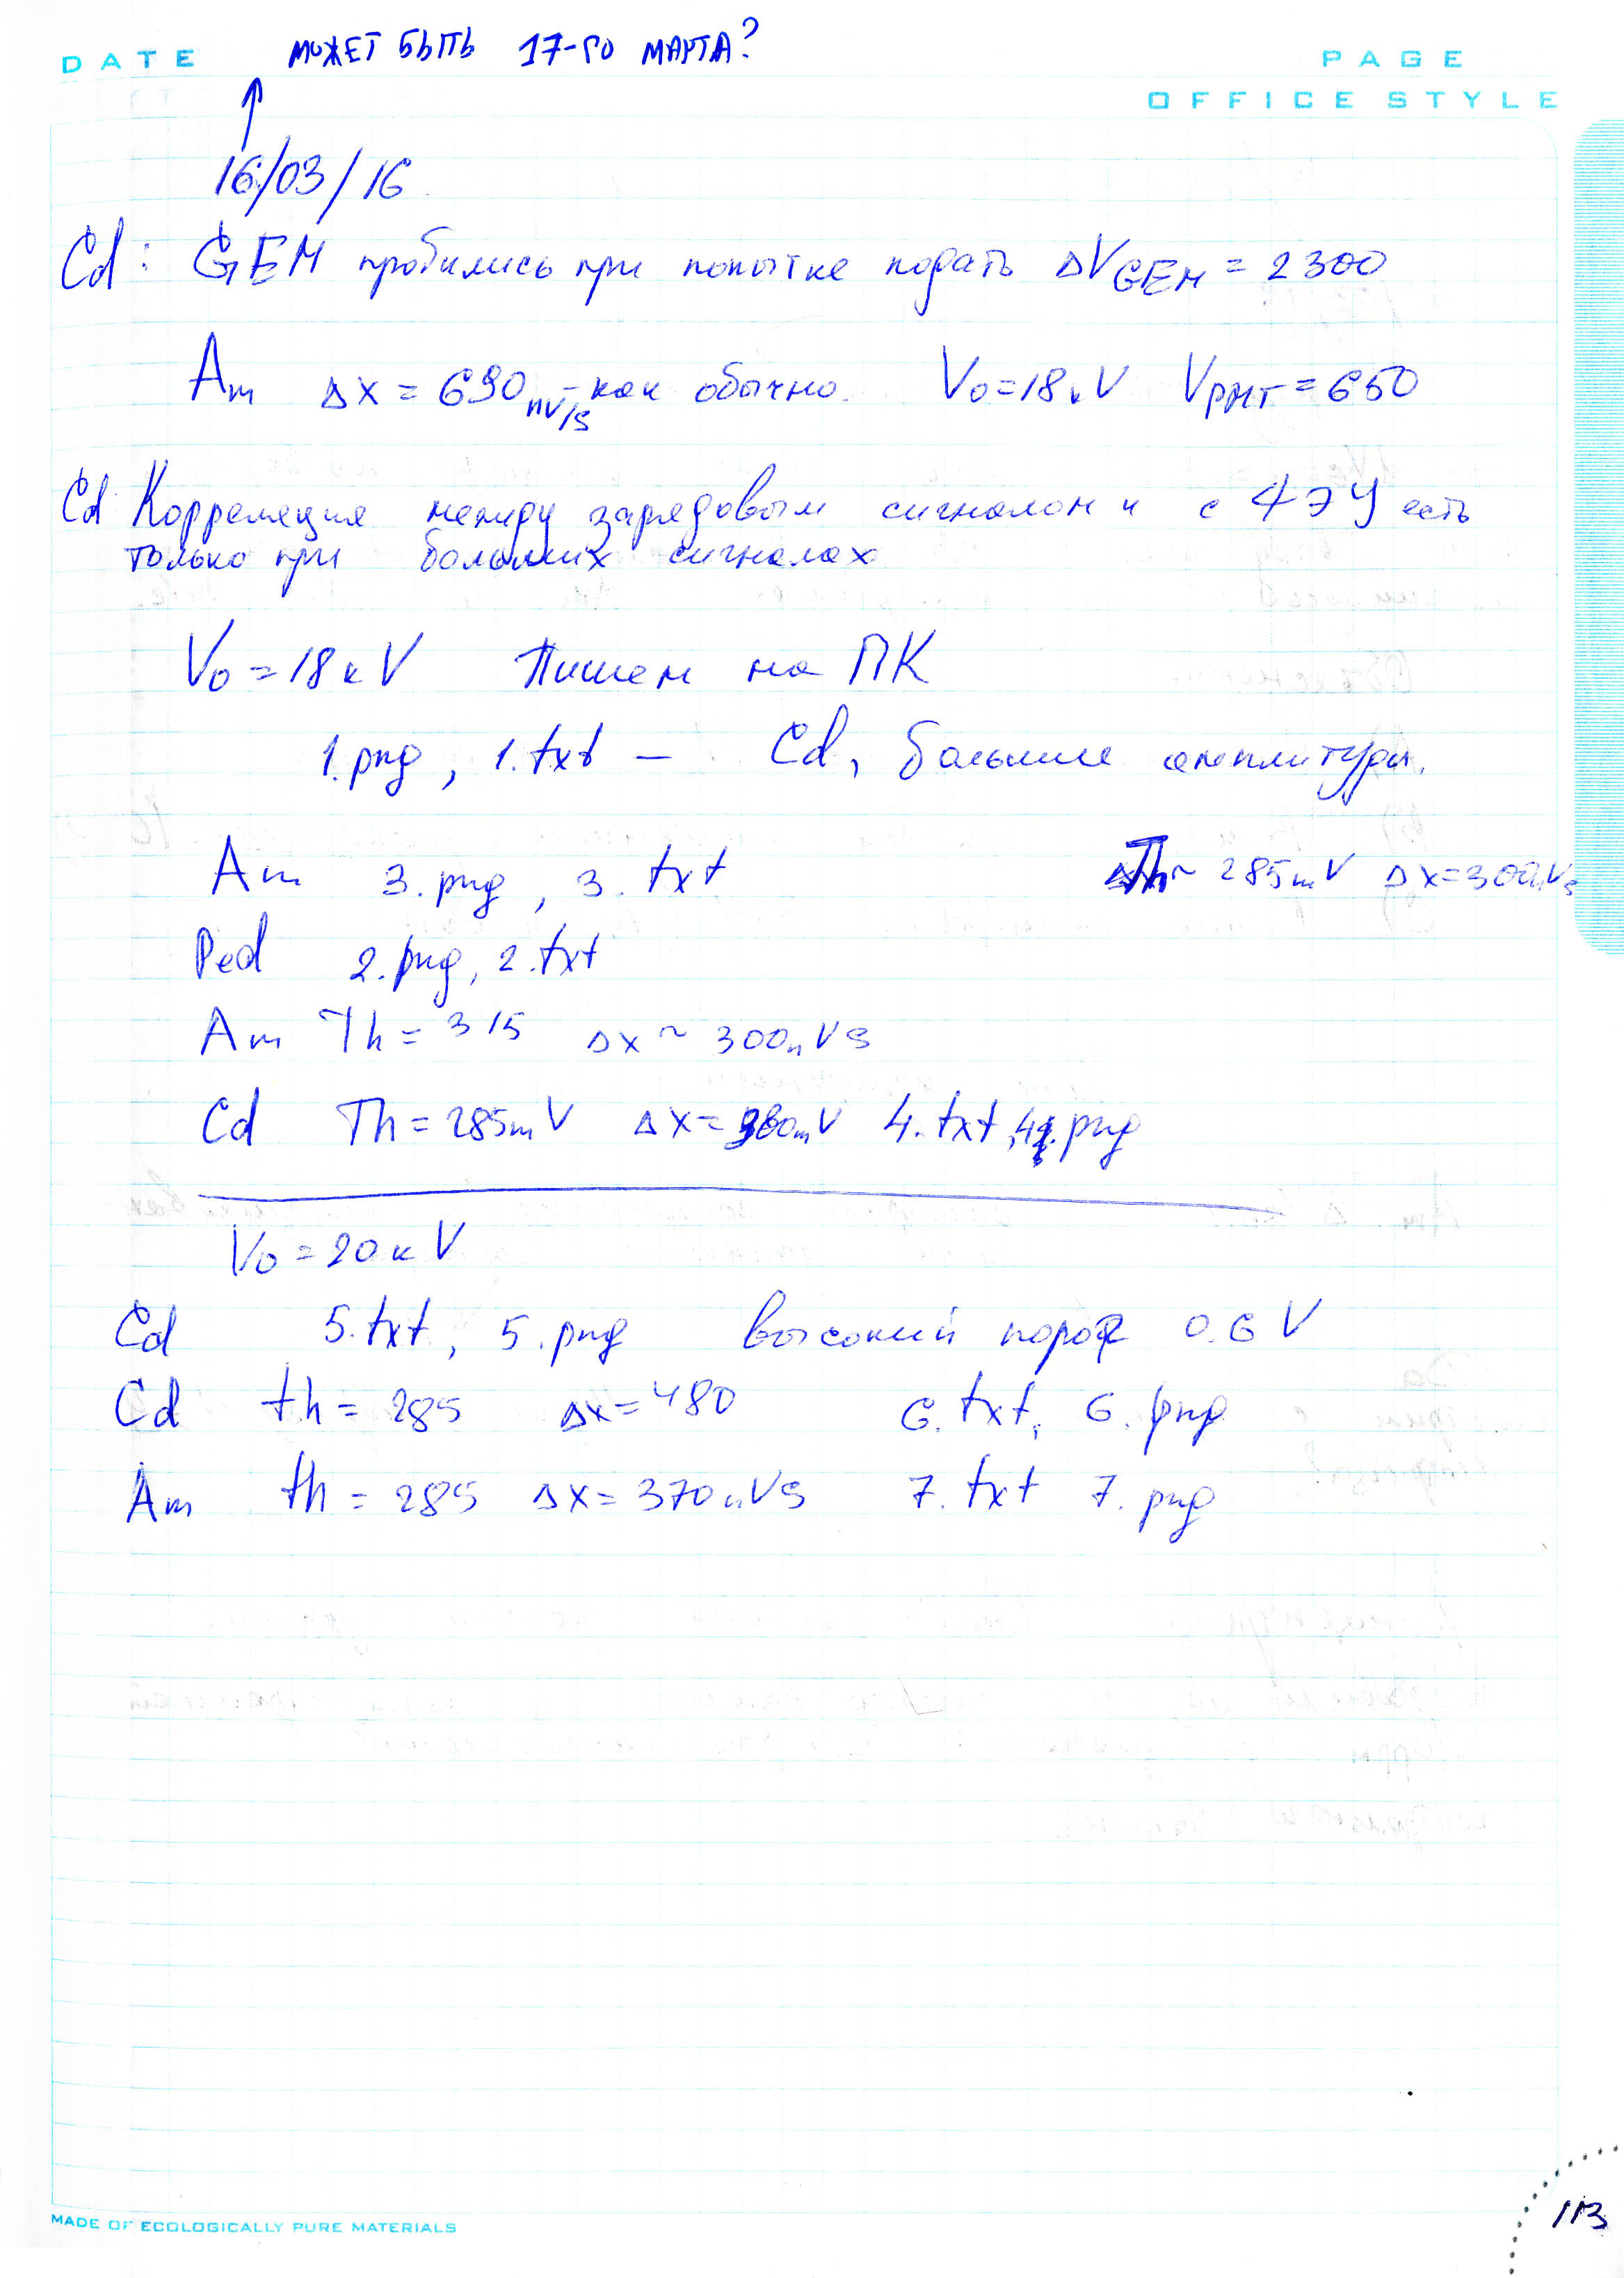 DATE
МОЖЕТ БЫТЬ 17-ГО МАРТА?
PAGE
OFFICE STYLE
16/03/16
Cd: GEM пробились при попытке подать ΔV_GEM = 2300
Am Δx = 690 nV/s - как обычно. V₀=18кV V_PMT=650
Cd Корреляция между зарядовым сигналом и с 4ЭУ есть
только при больших сигналах
V₀=18кV Пишем на ПК
1.png, 1.txt — Cd, большие амплитуды.
Am 3.png, 3.txt Th~ 285mV Δx=300nVs
Ped 2.png, 2.txt
Am Th = 315 Δx ~ 300nVs
Cd Th = 285mV Δx= mV 4.txt, 4.png
V₀ = 20кV
Cd 5.txt, 5.png высокий порог 0.6 V
Cd th = 285 Δx=480 6.txt, 6.png
Am th = 285 Δx= 370nVs 7.txt 7.png
MADE OF ECOLOGICALLY PURE MATERIALS
113